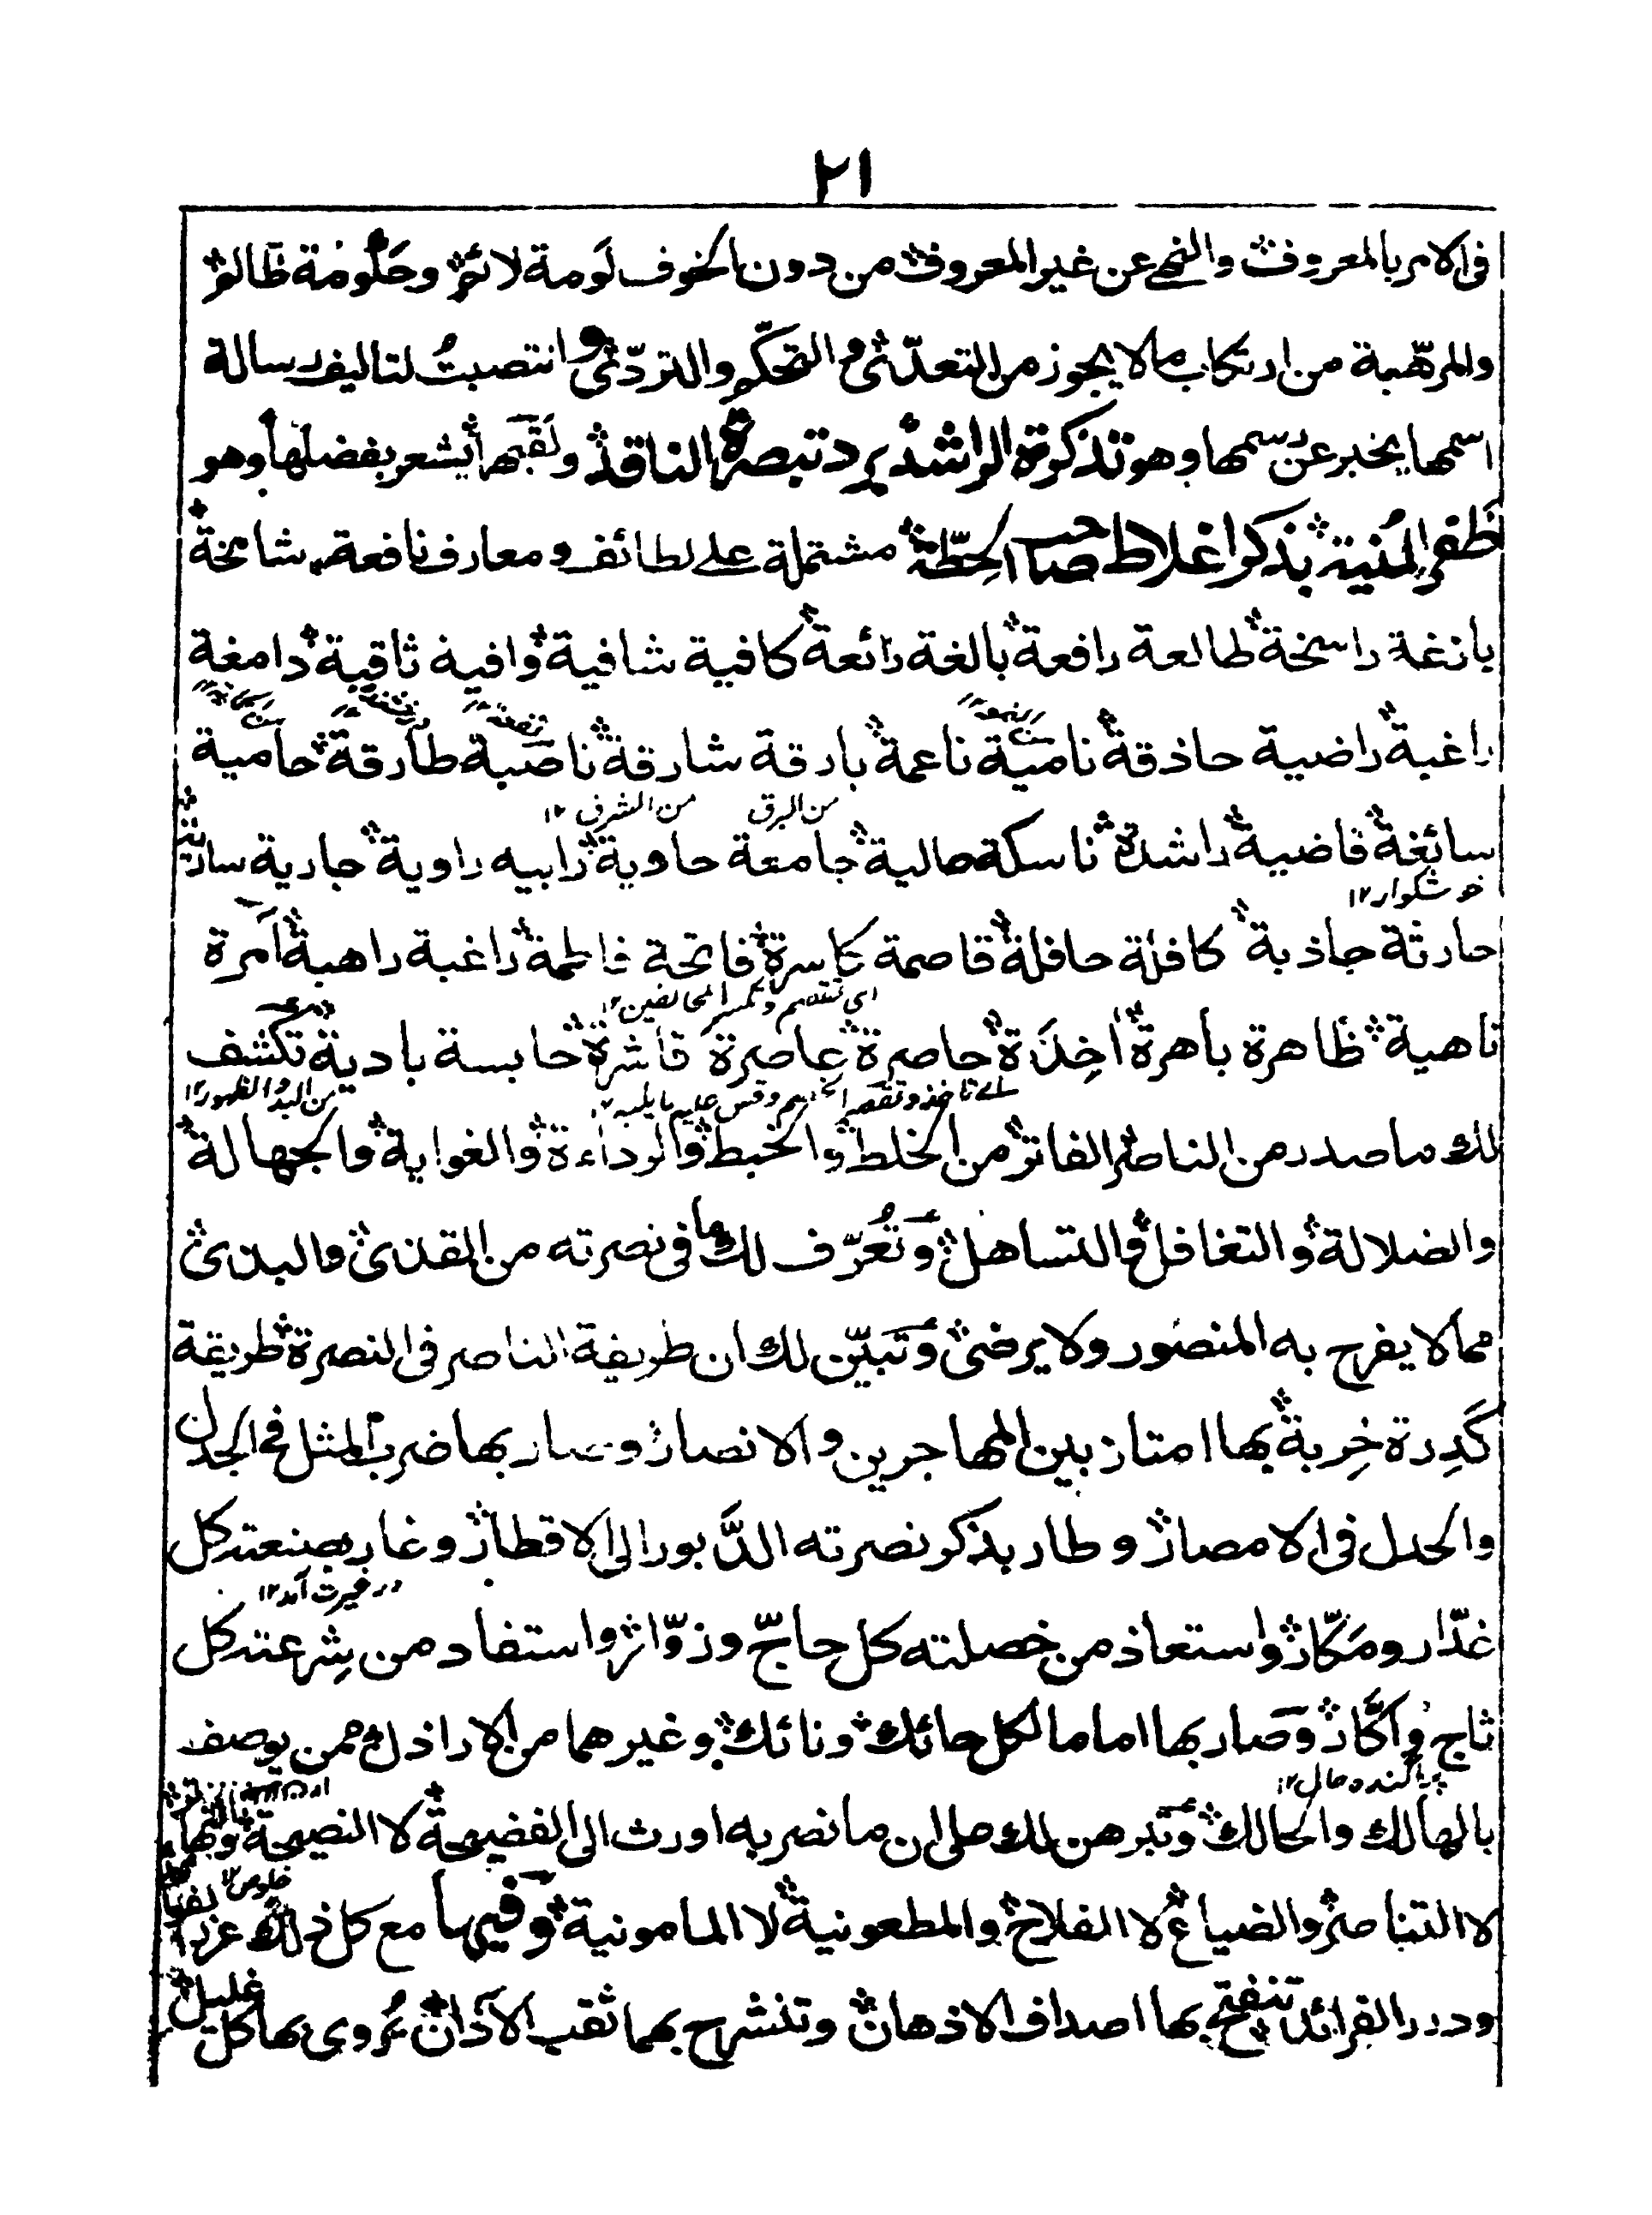 ٢١
فى الامر بالمعروف والنهى عن غير المعروف من دون الخوف لَومة لائم وحكومة ظالم
والمرهّبة من ارتكاب ما لا يجوز من التعدّى والتحكّم والتردّى وانتصبتُ لتاليف رسالة
اسمها يخبر عن رسمها وهو تذكرة الراشد برد تبصرة الناقد ولقبها يشعر بفضلها وهو
ظفر المُنية بذكر اغلاط صاحب الحِطّة مشتملة على لطائف ومعارف نافعة شامخة
بازغة راسخة طالعة رافعة بالغة رائعة كافية شافية وافية ثاقبة دامغة
راغبة راضية حاذقة نامية ناعمة بارقة شارقة ناصبة طارقة حامية
من البرق من الشرق ١٢
سائغة قاضية راشدة ناسكة حالية جامعة حاوية رابيه راوية جارية سارية
خوشگوار ١٢
حارثة جاذبة كافلة حافلة قاصمة كاسرة فاتحة فاطمة راغبة راهبة آمرة
اى تقصم وتكسر المخالفين ١٢
ناهية ظاهرة باهرة اٰخِذَة حاصرة عاصرة قاشرة حابسة بادية تكشف
من البدُوّ الظهور ١٢
لك ما صدر من الناصر الفاتر من الخلط والخبط والرداءة والغواية والجهالة
والضلالة والتغافل والتساهل وتُعرّف لك ما فى نصرته من القذى والبذى
مما لا يفرح به المنصور ولا يرضى وتبيّن لك ان طريقة الناصر فى النصرة طريقة
كَدِرة خِربة بها امتاز بين المهاجرين والانصار وسار بها ضرب المثل فى الجدل
والحدل فى الامصار وطار بذكر نصرته الدَّبور الى الاقطار وغار بصنعته كل
در غيرت آمد ١٢
غدّار ومَكّار واستعاذ من خصلته كل حاجّ وزوّار واستفاد من شِرعته كل
ثاج واكّار وصار بها اماما لكل حائك ونائك وغيرهما من الاراذل ممن يوصف
پراگنده حال ١٢
بالهالك والحالك وتبرهن لك على ان ما نصر به اورث الى الفضيحة لا النصيحة
خلوص ١٢
لا التناصر والضياع لا الفلاح والمطعونية لا المامونية وفيها مع كل ذلك
ودرر الفرائد تنفتح بها اصداف الاذهان وتنشرح بهما ثقب الآذان يُروى بها كل غليل